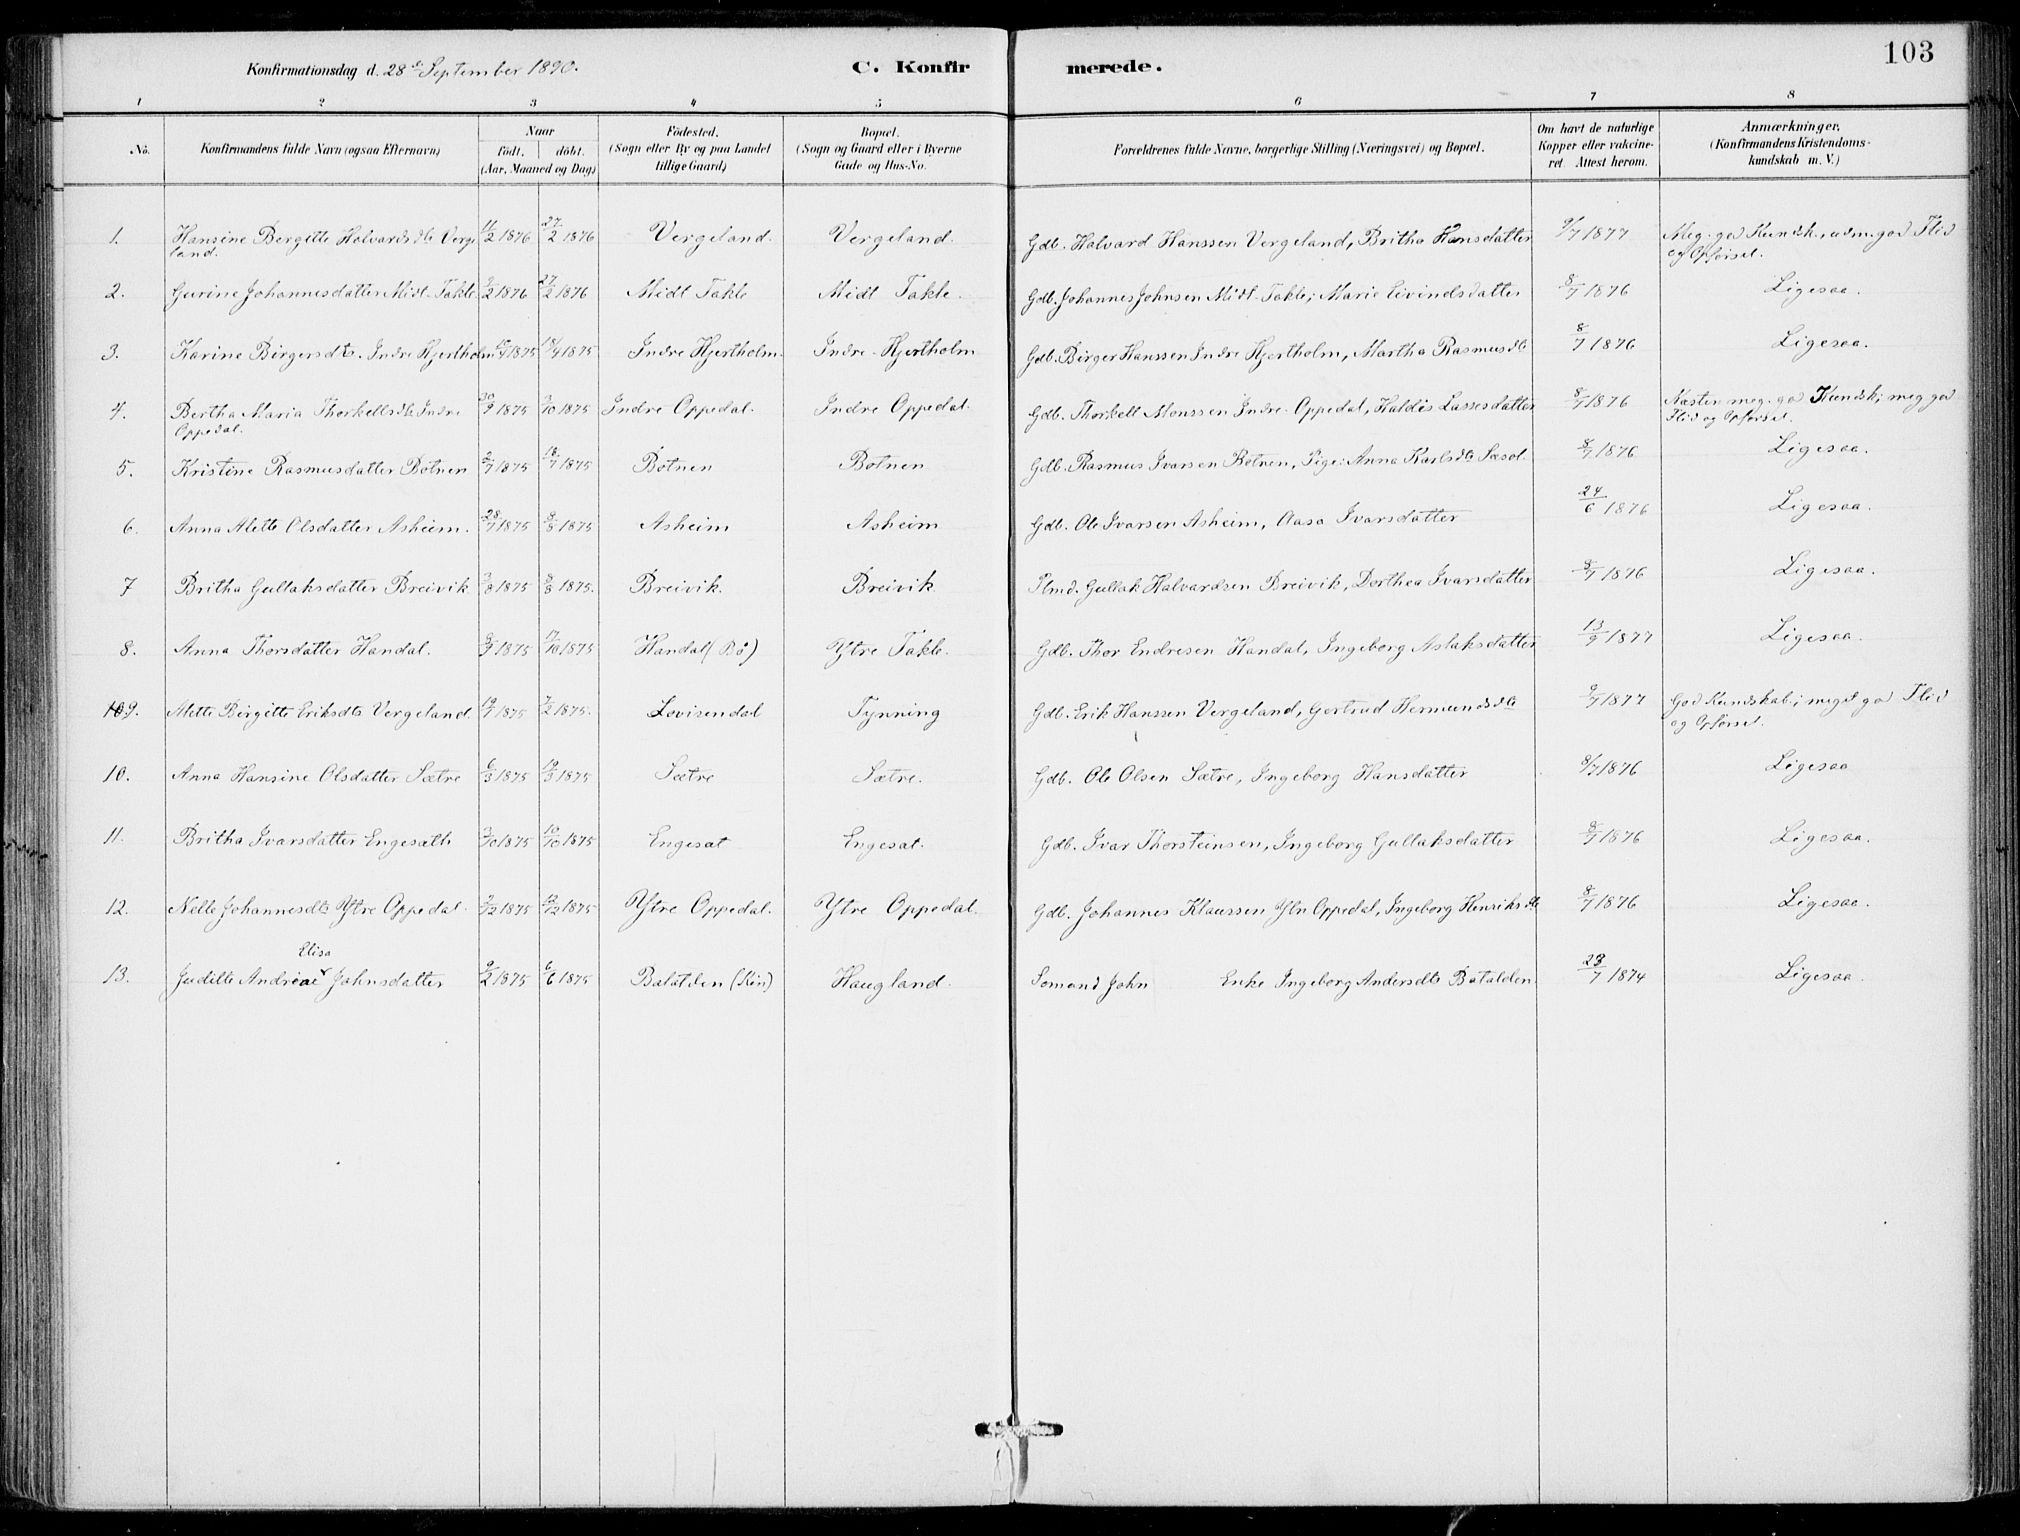 103
Konfirmationsdag d. 28de September 1890.
C. Konfirmerede.
1 2 3 4 5 6 7 8
No. Konfirmandens fulde Navn (ogsaa Efternavn) Naar født, døbt. (Aar, Maaned og Dag) Födested. (Sogn eller By og paa Landet tillige Gaard) Bopæl. (Sogn og Gaard eller i Byerne Gade og Hus-No. Forældrenes fulde Navne, borgerlige Stilling (Næringsvei) og Bopæl. Om havt de naturlige Kopper eller vakcineret. Attest herom. Anmærkninger. (Konfirmandens Kristendomskundskab m. V.)
1. Hansine Bergitte Halvardsdtr Vergeland. 11/2 1876 27/2 1876 Vergeland. Vergeland. Gdb. Halvard Hanssen Vergeland, Britha Hansdatter 9/7 1877 Meg. god Kundsk., udm. god Flid og Opførsel.
2. Gurine Johannesdatter Midt-Takle 27/2 1876 Midt Takle Midt Takle. Gdb. Johannes Johnsen Midt-Takle, Marie Eivindsdatter 8/7 1876 Ligesaa.
3. Karine Birgersdtr. Indre Hjertholm 1875 1875 Indre Hjertholm. Indre Hjertholm Gdb. Birger Hanssen Indre Hjertholm, Martha Rasmusdtr 8/7 1876 Ligesaa.
4. Bertha Maria Thorkellsdtr Indre Oppedal. 1875 3/10 1875 Indre Oppedal. Indre Oppedal. Gdb. Thorkell Monssen Indre Oppedal, Haldis Lassesdatter 8/7 1876 Næsten meg. god Kundsk; meg god Flid og Opførsel.
5. Kristine Rasmusdatter Botnen 1875 18/7 1875 Botnen Botnen Gdb. Rasmus Ivarsen Botnen, Pige: Anna Karlsdtr 8/7 1876 Ligesaa.
6. Anna Alette Olsdatter Asheim. 28/7 1875 8/8 1875 Asheim Asheim Gdb. Ole Ivarsen Asheim, Aasa Ivarsdatter 24/6 1876 Ligesaa.
7 Britha Gullaksdatter Breivik 3/8 1875 8/8 1875. Breivik. Breivik. Plmd. Gullak Halvardsen Breivik, Dorthea Ivarsdatter 8/7 1876 Ligesaa.
8. Anna Thorsdatter Handal. 1875 17/10 1875 Handal (Bø) Ytre Takle. Gdb. Thor Endresen Handal, Ingeborg Aslaksdatter 13/9 1877 Ligesaa.
9. Mette Birgitte Eriksdtr Vergeland. 1875 7/2 1875. Lovisendal Tynning Gdb. Erik Hanssen Vergeland, Gertrud Hermundsdtr 9/7 1877 God Kundskab; meget god Flid og Opførsel.
10. Anna Hansine Olsdatter Sætre 6/3 1875 1875 Sætre Sætre. Gdb. Ole Olsen Sætre, Ingeborg Hansdatter 8/7 1876 Ligesaa
11. Britha Ivarsdatter Engesæth 3/10 1875 10/10 1875 Engesæt Engesæt. Gdb. Ivar Thorsteinsen, Ingeborg Gullaksdatter 8/7 1876 Ligesaa.
12. Nelle Johannesdtr Ytre Oppedal. 1875 12/12 1875 Ytre Oppedal. Ytre Oppedal. Gdb. Johannes Klaussen Ytre Oppedal, Ingeborg Henriksdtr 8/7 1876 Ligesaa.
Elisa
13. Juditte Andreae Johnsdatter 9/2 1875 6/6 1875 Batalden (Kin) Haugland. Sømand John Enke Ingeborg Andersdtr Batalden. 23/7 1874 Ligesaa.